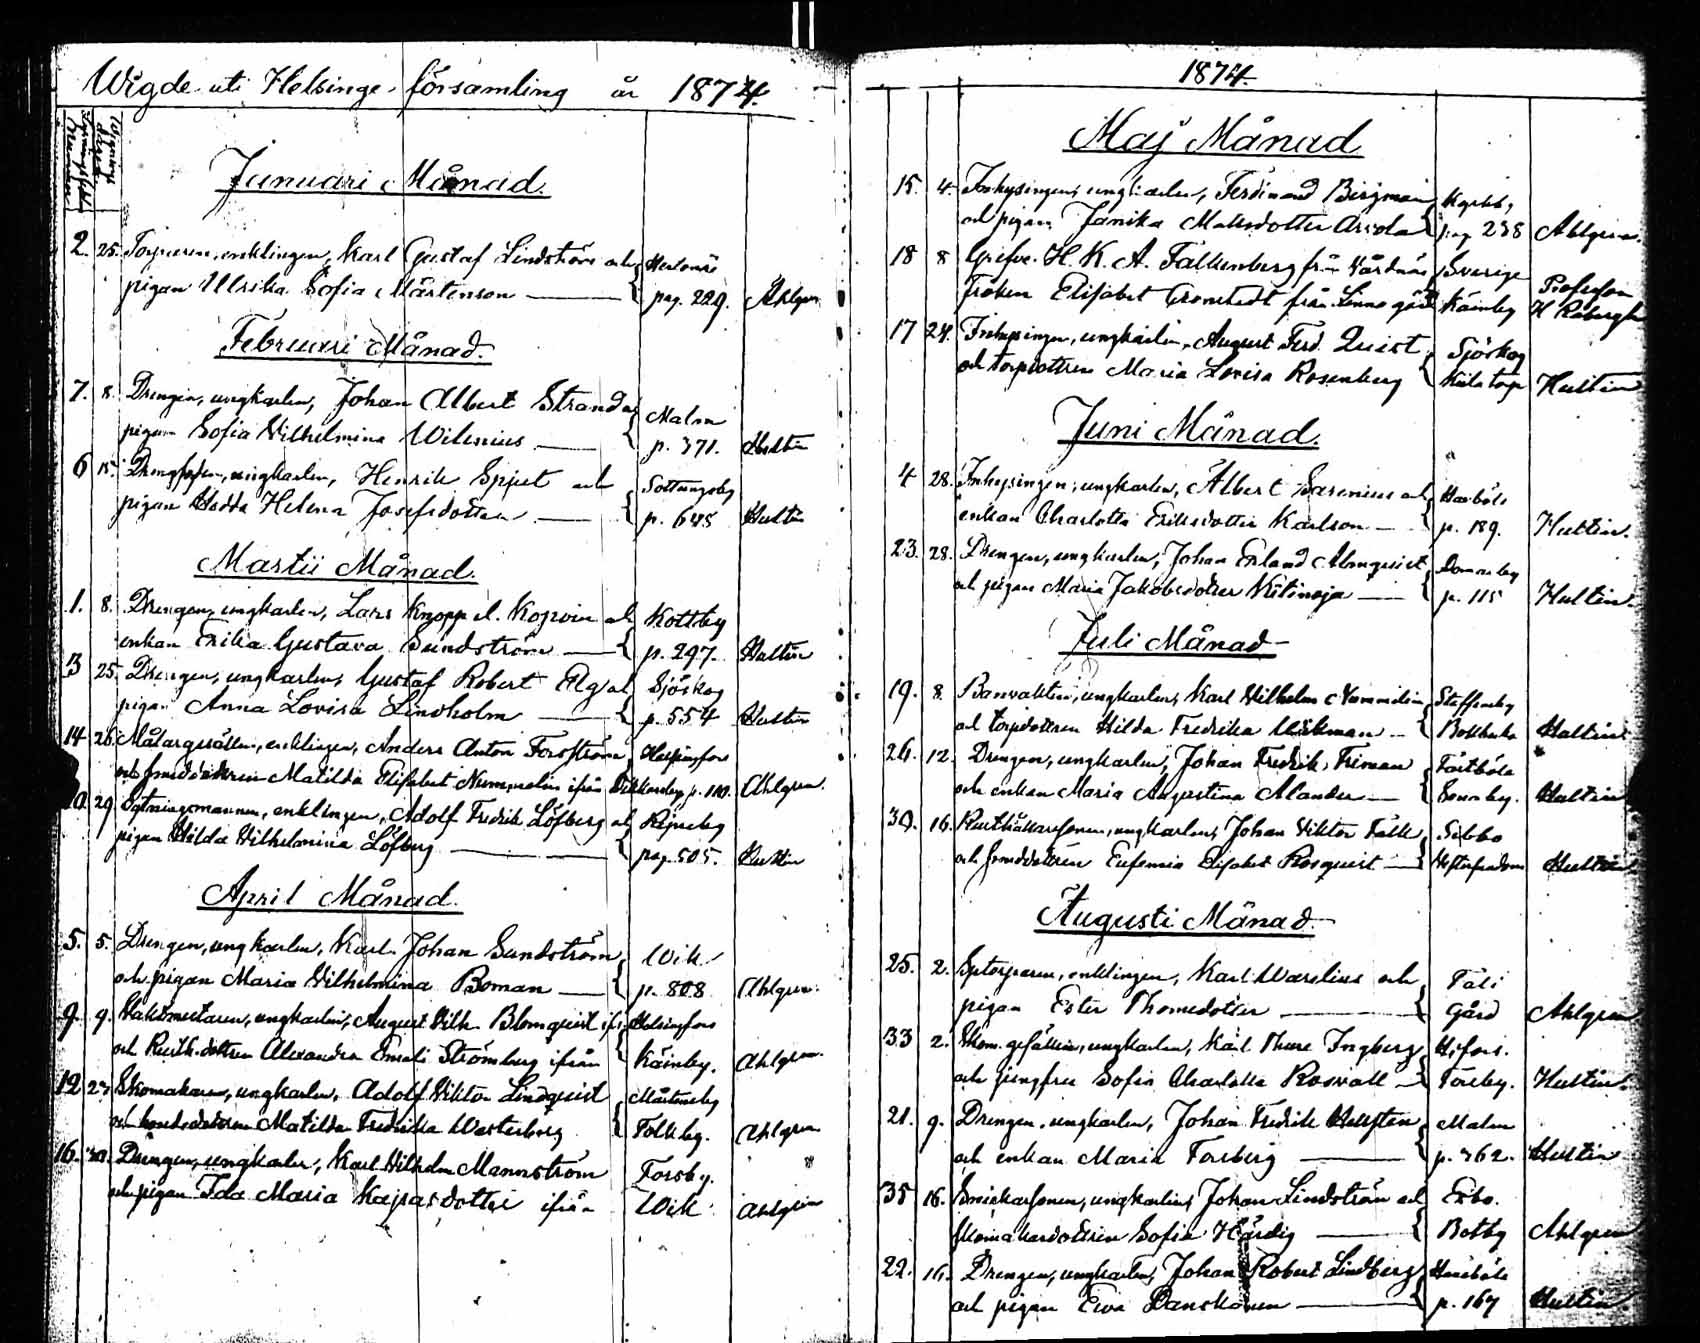 Wigde uti Helsinge församling år 1874.
Januari Månad.
2. 25. Torparen, enklingen, Karl Gustaf Lindström och
pigan Ulrika Sofia Mårtenson pag. 229. Ahlgren
Februari Månad.
7. 8. Drengen, ungkarlen, Johan Albert Strand och Malm
pigan Sofia Vilhelmina Wilenius p. 371. Hultin
6 15. ungkarlen, Henrik Spjut och Sottungsby
pigan Hedda Helena Josefsdotter p. 645 Hultin
Martii Månad.
1. 8. Drengen, ungkarlen, Lars Knopp el. och Kottby
enkan Erika Gustava Sundström p. 297. Hultin
13 25. Drengen, ungkarlen, Gustaf Robert Elg och Sjöskog
pigan Anna Lovisa Lindholm p. 554 Hultin
14 26. Målargesällen, enklingen, Anders Anton Forsström Helsingfors
och Matilda Elisabet Nummelin ifrån Dickursby p. 110. Ahlgren.
29. enklingen, Adolf Fredrik Löfberg och Ripuby
pigan Hilda Vilhelmina Löfberg pag. 505. Hultin
April Månad.
5. 5. Drengen, ungkarlen, Karl Johan Sundström Wik
och pigan Maria Vilhelmina Boman p. 808 Ahlgren.
9. 9. ungkarlen, August Vilh. Blomquist ifr. Helsingfors
och Alexandra Emeli Strömberg ifrån Käinby. Ahlgren.
12 Skomakaren, ungkarlen, Adolf Viktor Lindquist Mårtensby
och bondedottren Matilda Fredrika Westerberg Tolkby. Ahlgren
16. 30. Drengen, ungkarlen, Karl Vilhelm Mannström Forsby.
och pigan Ida Maria Kajsasdotter ifrån Wik Ahlgren
1874.
Maj Månad
15. 4. Inhysingen, ungkarlen, Ferdinand Bergman
och pigan Janika Matsdotter Arvola pag 238 Ahlgren.
18 8 Grefve H. K. A. Falkenberg från Vårdnäs Sverige Professor
Fröken Elisabet Cronstedt från Linna gård Käinby H Råbergh
17 24. Inhysingen, ungkarlen, August Ferd. Quist Sjöskog
och torpdottren Maria Lovisa Rosenberg Hultin
Juni Månad.
4 28. Inhysingen, ungkarlen, Albert Sarenius och Haxböle
enkan Charlotta Eriksdotter Karlson p. 189. Hultin.
23. 28. Drengen, ungkarlen, Johan Erland Almquist Domarby
och pigan Maria Jakobsdotter Nitinoja p. 115 Hultin.
Juli Månad
19. 8. Banvakten, ungkarlen, Karl Vilhelm Nummelin Staffansby
och torpdottren Hilda Fredrika Bokbacka Hultin.
26. 12. Drengen, ungkarlen, Johan Fredrik Friman Fastböle
och enkan Maria Augustina Alander Hultin
30. 16. ungkarlen, Johan Viktor Falk Sibbo
och Eufemia Elisabet Rosquist Hultin.
Augusti Månad.
25. 2. enklingen, Karl Warelius och Tali
pigan Ester Thomedotter Gård Ahlgren
33 2. Skom. gesällen, ungkarlen, Karl Thure Ingberg H:fors.
och jungfru Sofia Charlotta Rosvall Hultin.
21. 9. Drengen, ungkarlen, Johan Fredrik Hellsten Malm
och enkan Maria Forsberg p. 362. Hultin
35 16. ungkarlen, Johan Lindström och Esbo.
skomakardottren Sofia Härdig Botby Ahlgren
22. 16. Drengen, ungkarlen, Johan Robert Lindberg Haxböle
och pigan Eva Danskanen p. 167 Hultin